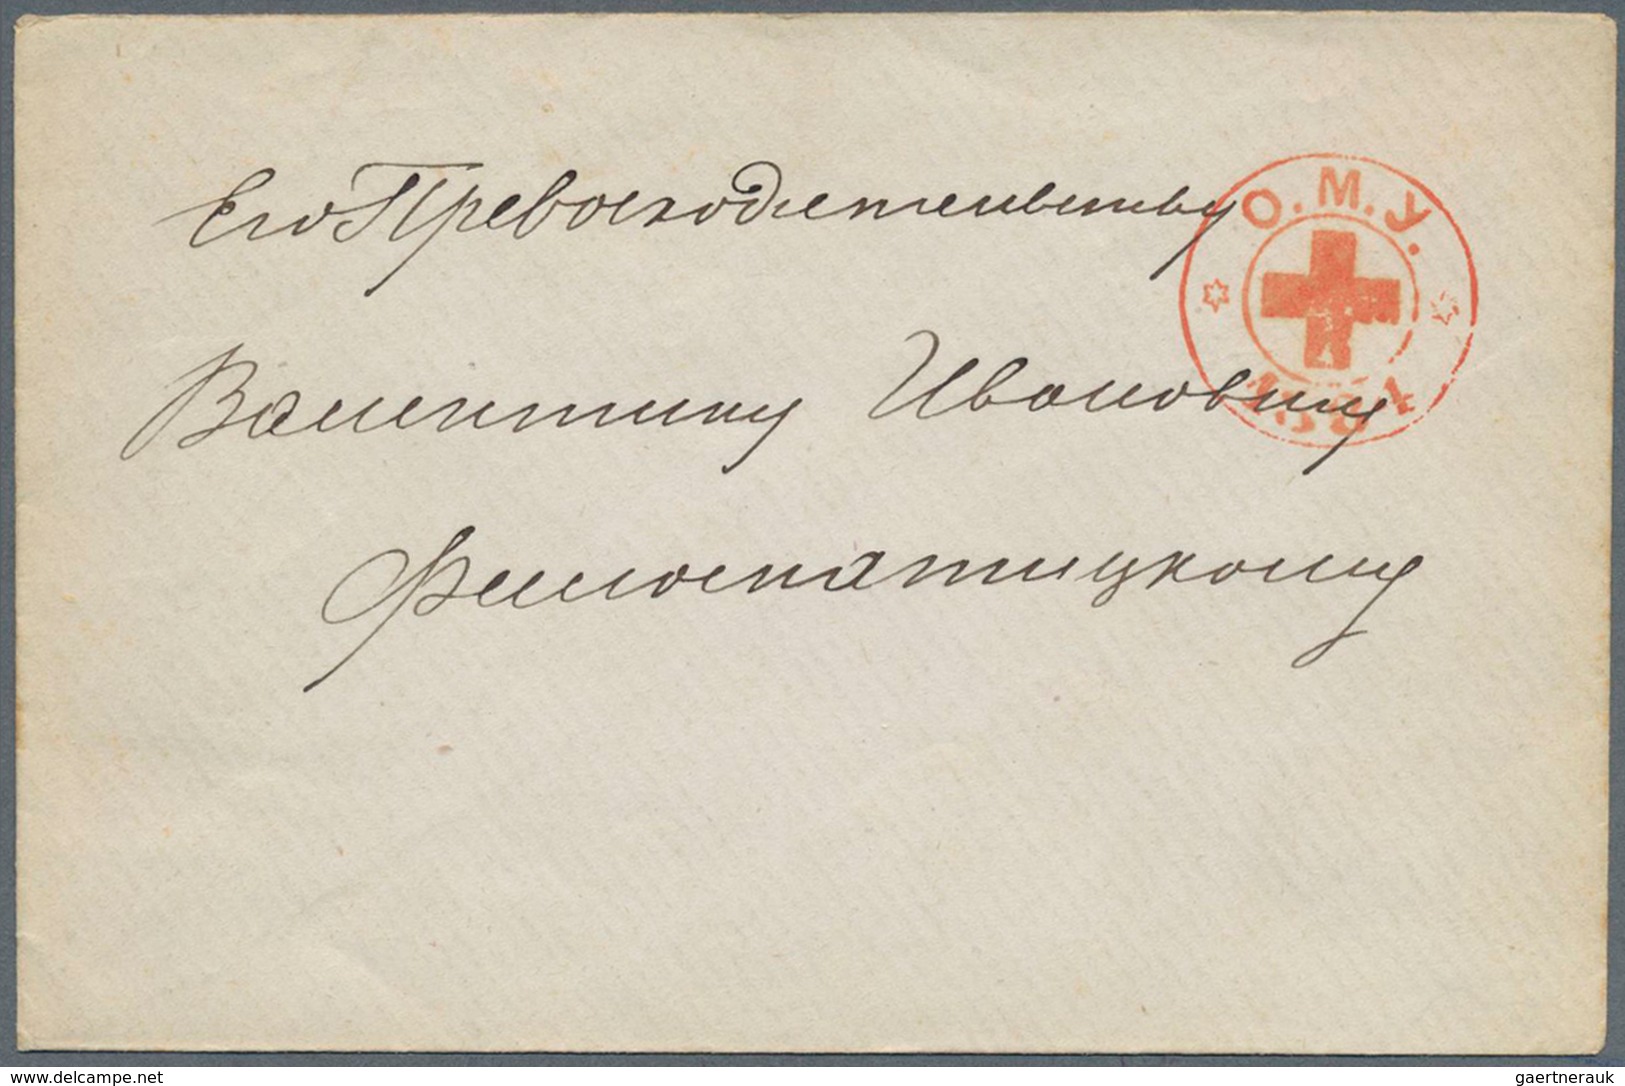 Его Превосходительству
О.М.У.
Валентину Ивановичу
1881
Филоматицкому
www.delcampe.net
gaertnerauk